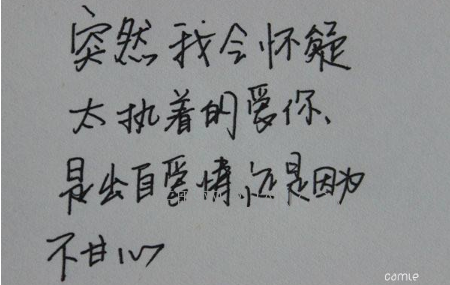 突然我会怀疑
太执着的爱你、
是出自爱情,还是因为
不甘心
comle